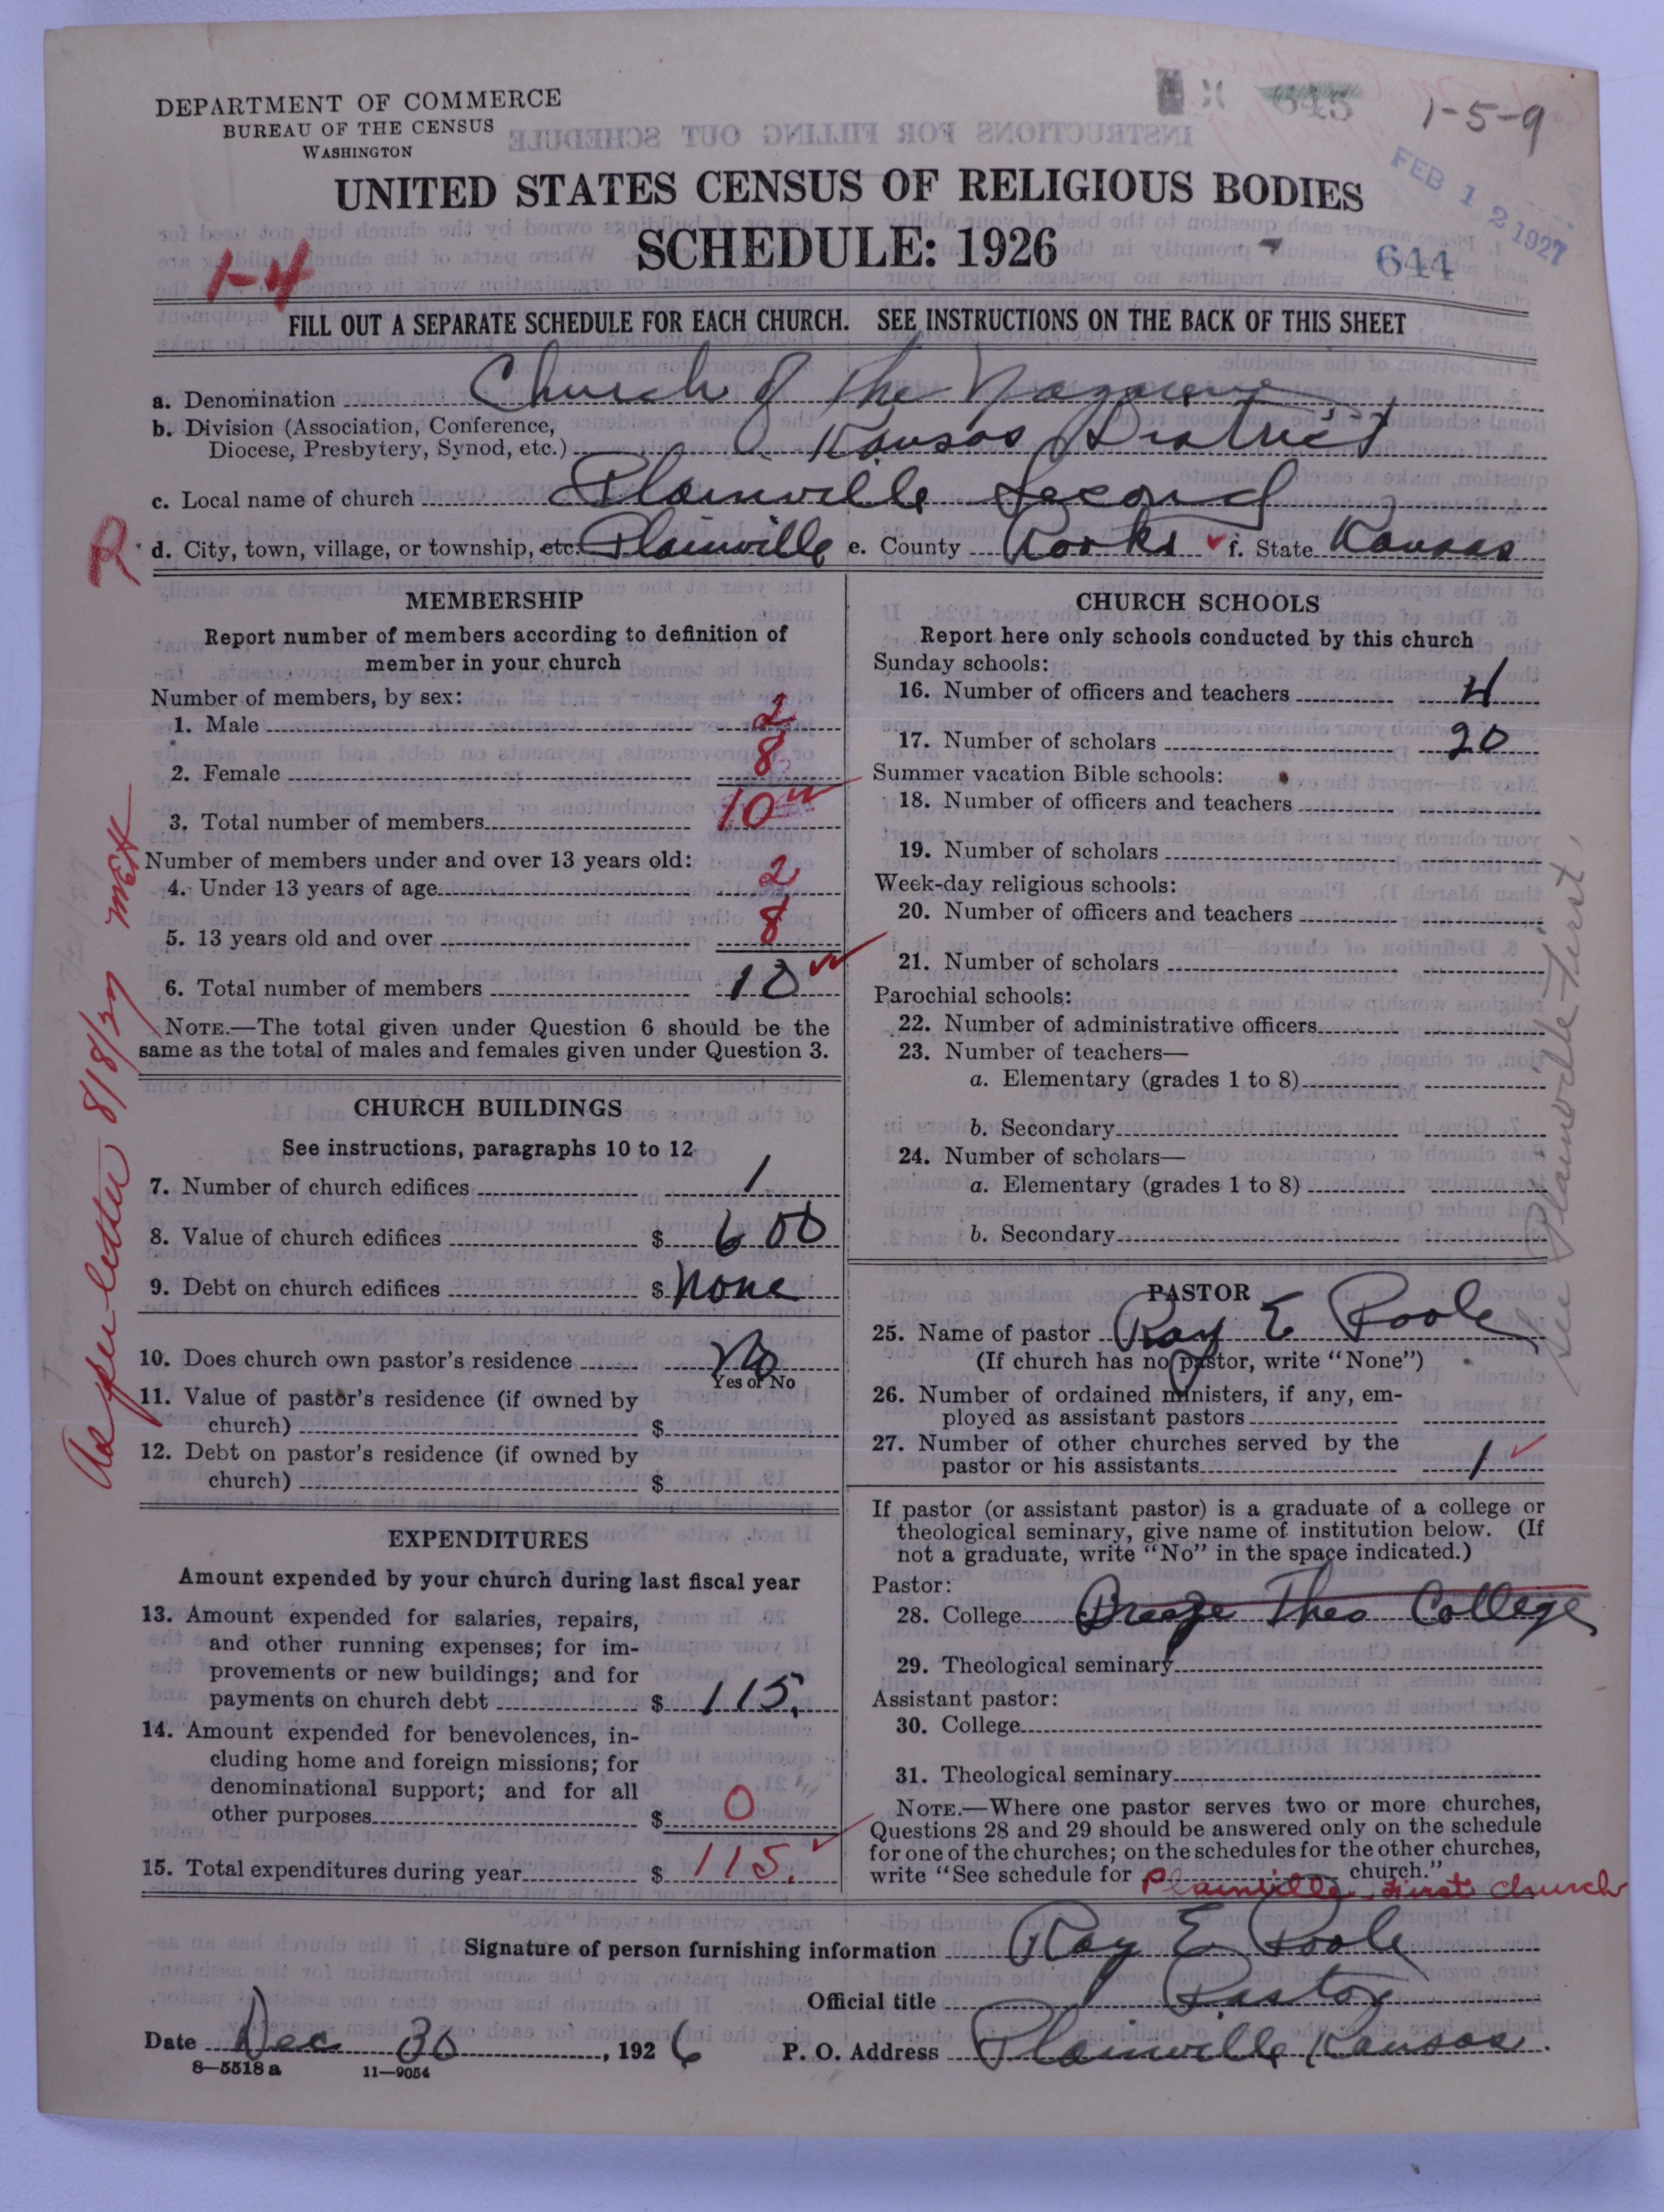 DEPARTMENT OF COMMERCE
BUREAU OF THE CENSUS
WASHINGTON
645
1-5-9
FEB 12 1927
644
UNITED STATES CENSUS OF RELIGIOUS BODIES
SCHEDULE: 1926
1-4
FILL OUT A SEPARATE SCHEDULE FOR EACH CHURCH. SEE INSTRUCTIONS ON THE BACK OF THIS SHEET
a. Denomination Church of the Nazarene
b. Division (Association, Conference,
Diocese, Presbytery, Synod, etc.) Kansas District
c. Local name of church Plainville Second
R
d. City, town, village, or township, etc. Plainville e. County Rooks f. State Kansas
MEMBERSHIP
Report number of members according to definition of
member in your church
Number of members, by sex:
1. Male 2
2. Female 8
3. Total number of members 10
Number of members under and over 13 years old:
4. Under 13 years of age 2
5. 13 years old and over 8
6. Total number of members 10
NOTE.—The total given under Question 6 should be the
same as the total of males and females given under Question 3.
CHURCH BUILDINGS
See instructions, paragraphs 10 to 12
7. Number of church edifices 1
8. Value of church edifices $ 600
9. Debt on church edifices $ none
10. Does church own pastor's residence No
Yes or No
11. Value of pastor's residence (if owned by
church) $
12. Debt on pastor's residence (if owned by
church) $
EXPENDITURES
Amount expended by your church during last fiscal year
13. Amount expended for salaries, repairs,
and other running expenses; for im-
provements or new buildings; and for
payments on church debt $ 115.
14. Amount expended for benevolences, in-
cluding home and foreign missions; for
denominational support; and for all
other purposes $ 0
15. Total expenditures during year $ 115.
As per letter 8/8/27 MEH
CHURCH SCHOOLS
Report here only schools conducted by this church
Sunday schools:
16. Number of officers and teachers 4
17. Number of scholars 20
Summer vacation Bible schools:
18. Number of officers and teachers
19. Number of scholars
Week-day religious schools:
20. Number of officers and teachers
21. Number of scholars
Parochial schools:
22. Number of administrative officers
23. Number of teachers—
a. Elementary (grades 1 to 8)
b. Secondary
24. Number of scholars—
a. Elementary (grades 1 to 8)
b. Secondary
See Plainville-First,
PASTOR
25. Name of pastor Ray E Poole
(If church has no pastor, write "None")
26. Number of ordained ministers, if any, em-
ployed as assistant pastors
27. Number of other churches served by the
pastor or his assistants 1
If pastor (or assistant pastor) is a graduate of a college or
theological seminary, give name of institution below. (If
not a graduate, write "No" in the space indicated.)
Pastor:
28. College Breeze Theo College
29. Theological seminary
Assistant pastor:
30. College
31. Theological seminary
NOTE.—Where one pastor serves two or more churches,
Questions 28 and 29 should be answered only on the schedule
for one of the churches; on the schedules for the other churches,
write "See schedule for Plainville First church church."
Signature of person furnishing information Ray E Poole
Official title Pastor
Date Dec 30, 1926 P. O. Address Plainville Kansas.
8—5518 a 11—9054